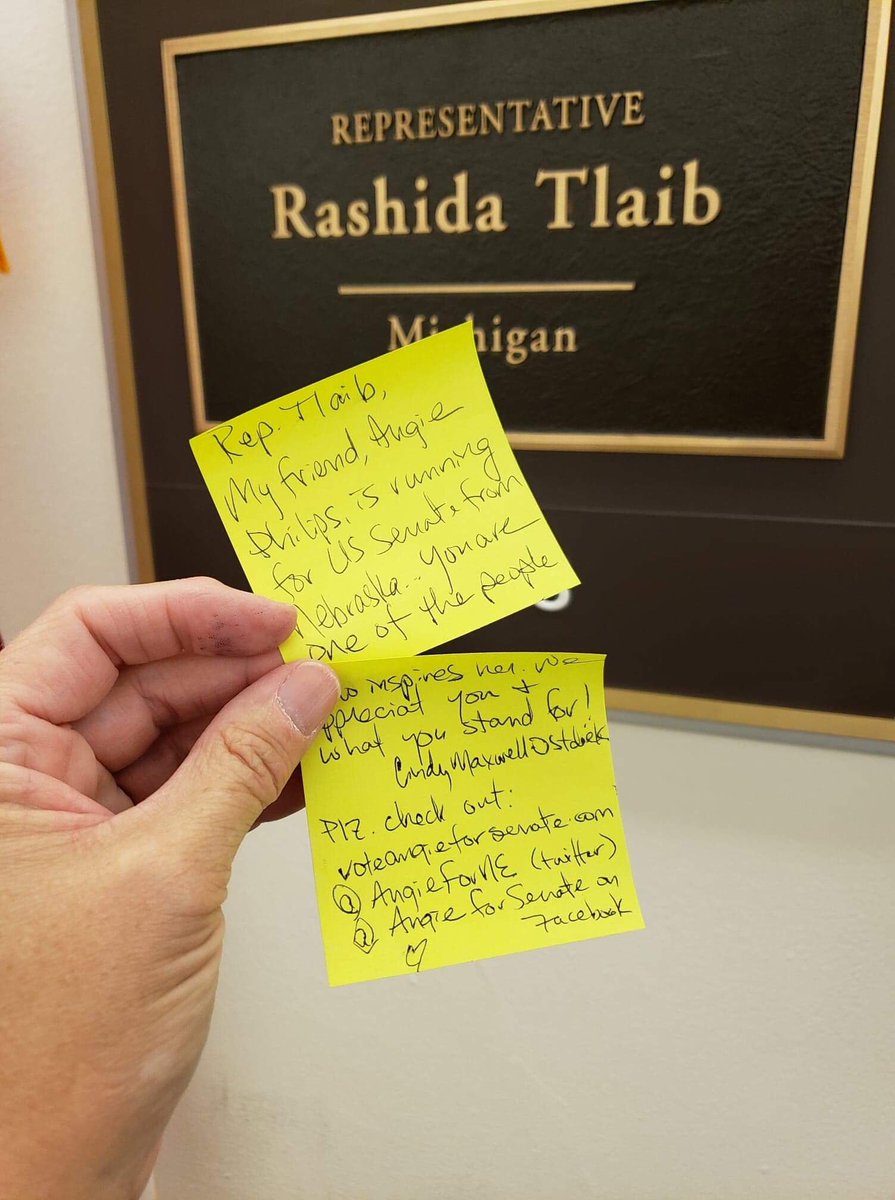 REPRESENTATIVE
Rashida Tlaib
Michigan
Rep. Tlaib,
My friend, Angie
Philips, is running
for US Senate from
Nebraska... You are
one of the people
inspires her. We
appreciat you &
what you stand for!
Cindy Maxwell Ostdiek
Plz. check out:
voteangieforsenate.com
@ AngieForNE (twitter)
@ Angie for Senate on
Facebook